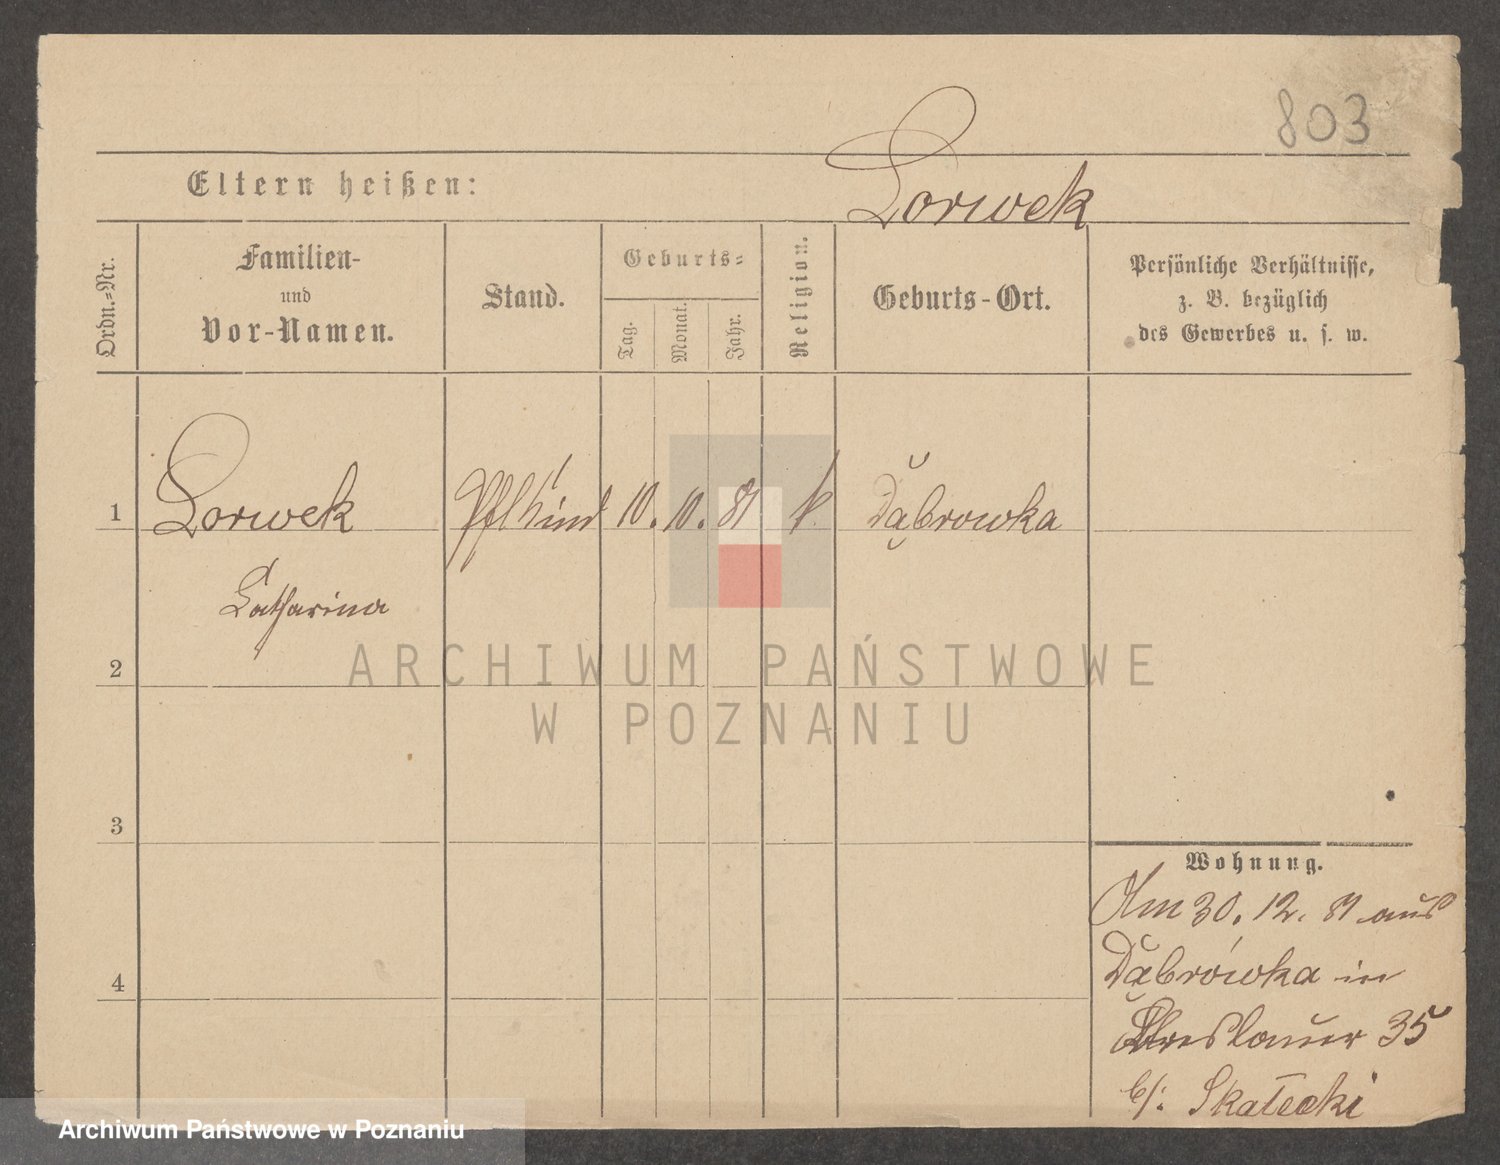 803
Eltern heißen: Lorwek
Ordn.-Nr.
Familien-
und
Vor-Namen.
Stand.
Geburts-
Tag.
Monat.
Jahr.
Religion.
Geburts-Ort.
Persönliche Verhältnisse,
z. B. bezüglich
des Gewerbes u. s. w.
1 Lorwek Pflkind 10. 10. 81 k. Dąbrowka
Catharina
2
3
4
Wohnung.
Am 30. 12. 81 aus
Dąbrówka in
Breslauer 35
b/: Skałecki
ARCHIWUM PAŃSTWOWE
W POZNANIU
Archiwum Państwowe w Poznaniu